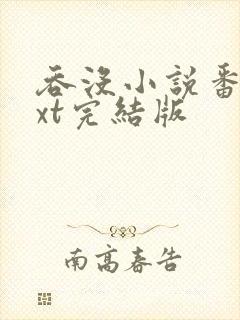 吞沒小說番
xt完結版
南高春告